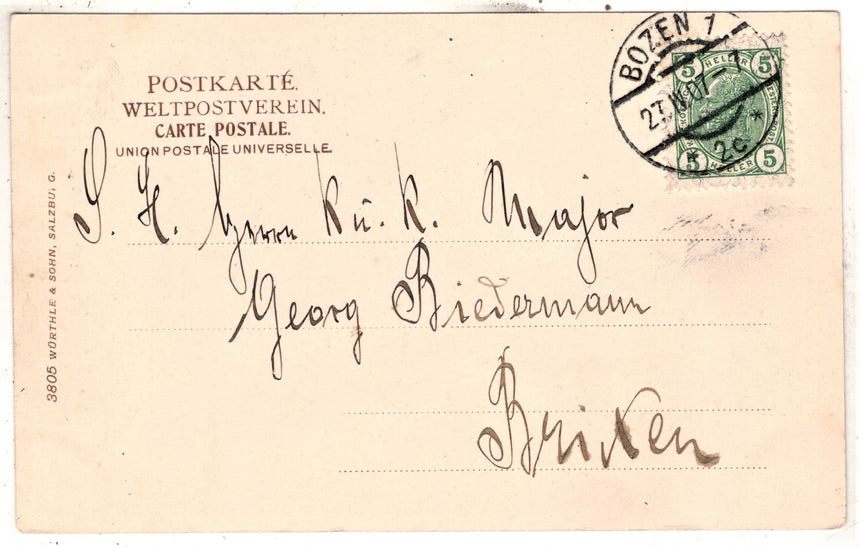 POSTKARTE.
WELTPOSTVEREIN.
CARTE POSTALE.
UNION POSTALE UNIVERSELLE.
BOZEN 1
27 IV 07 - 7
* 2c *
5 HELLER 5
5 HELLER 5
S. H. Herrn k u. k. Major
Georg Biedermann
Brixen
3805 WÜRTHLE & SOHN, SALZBU. G.